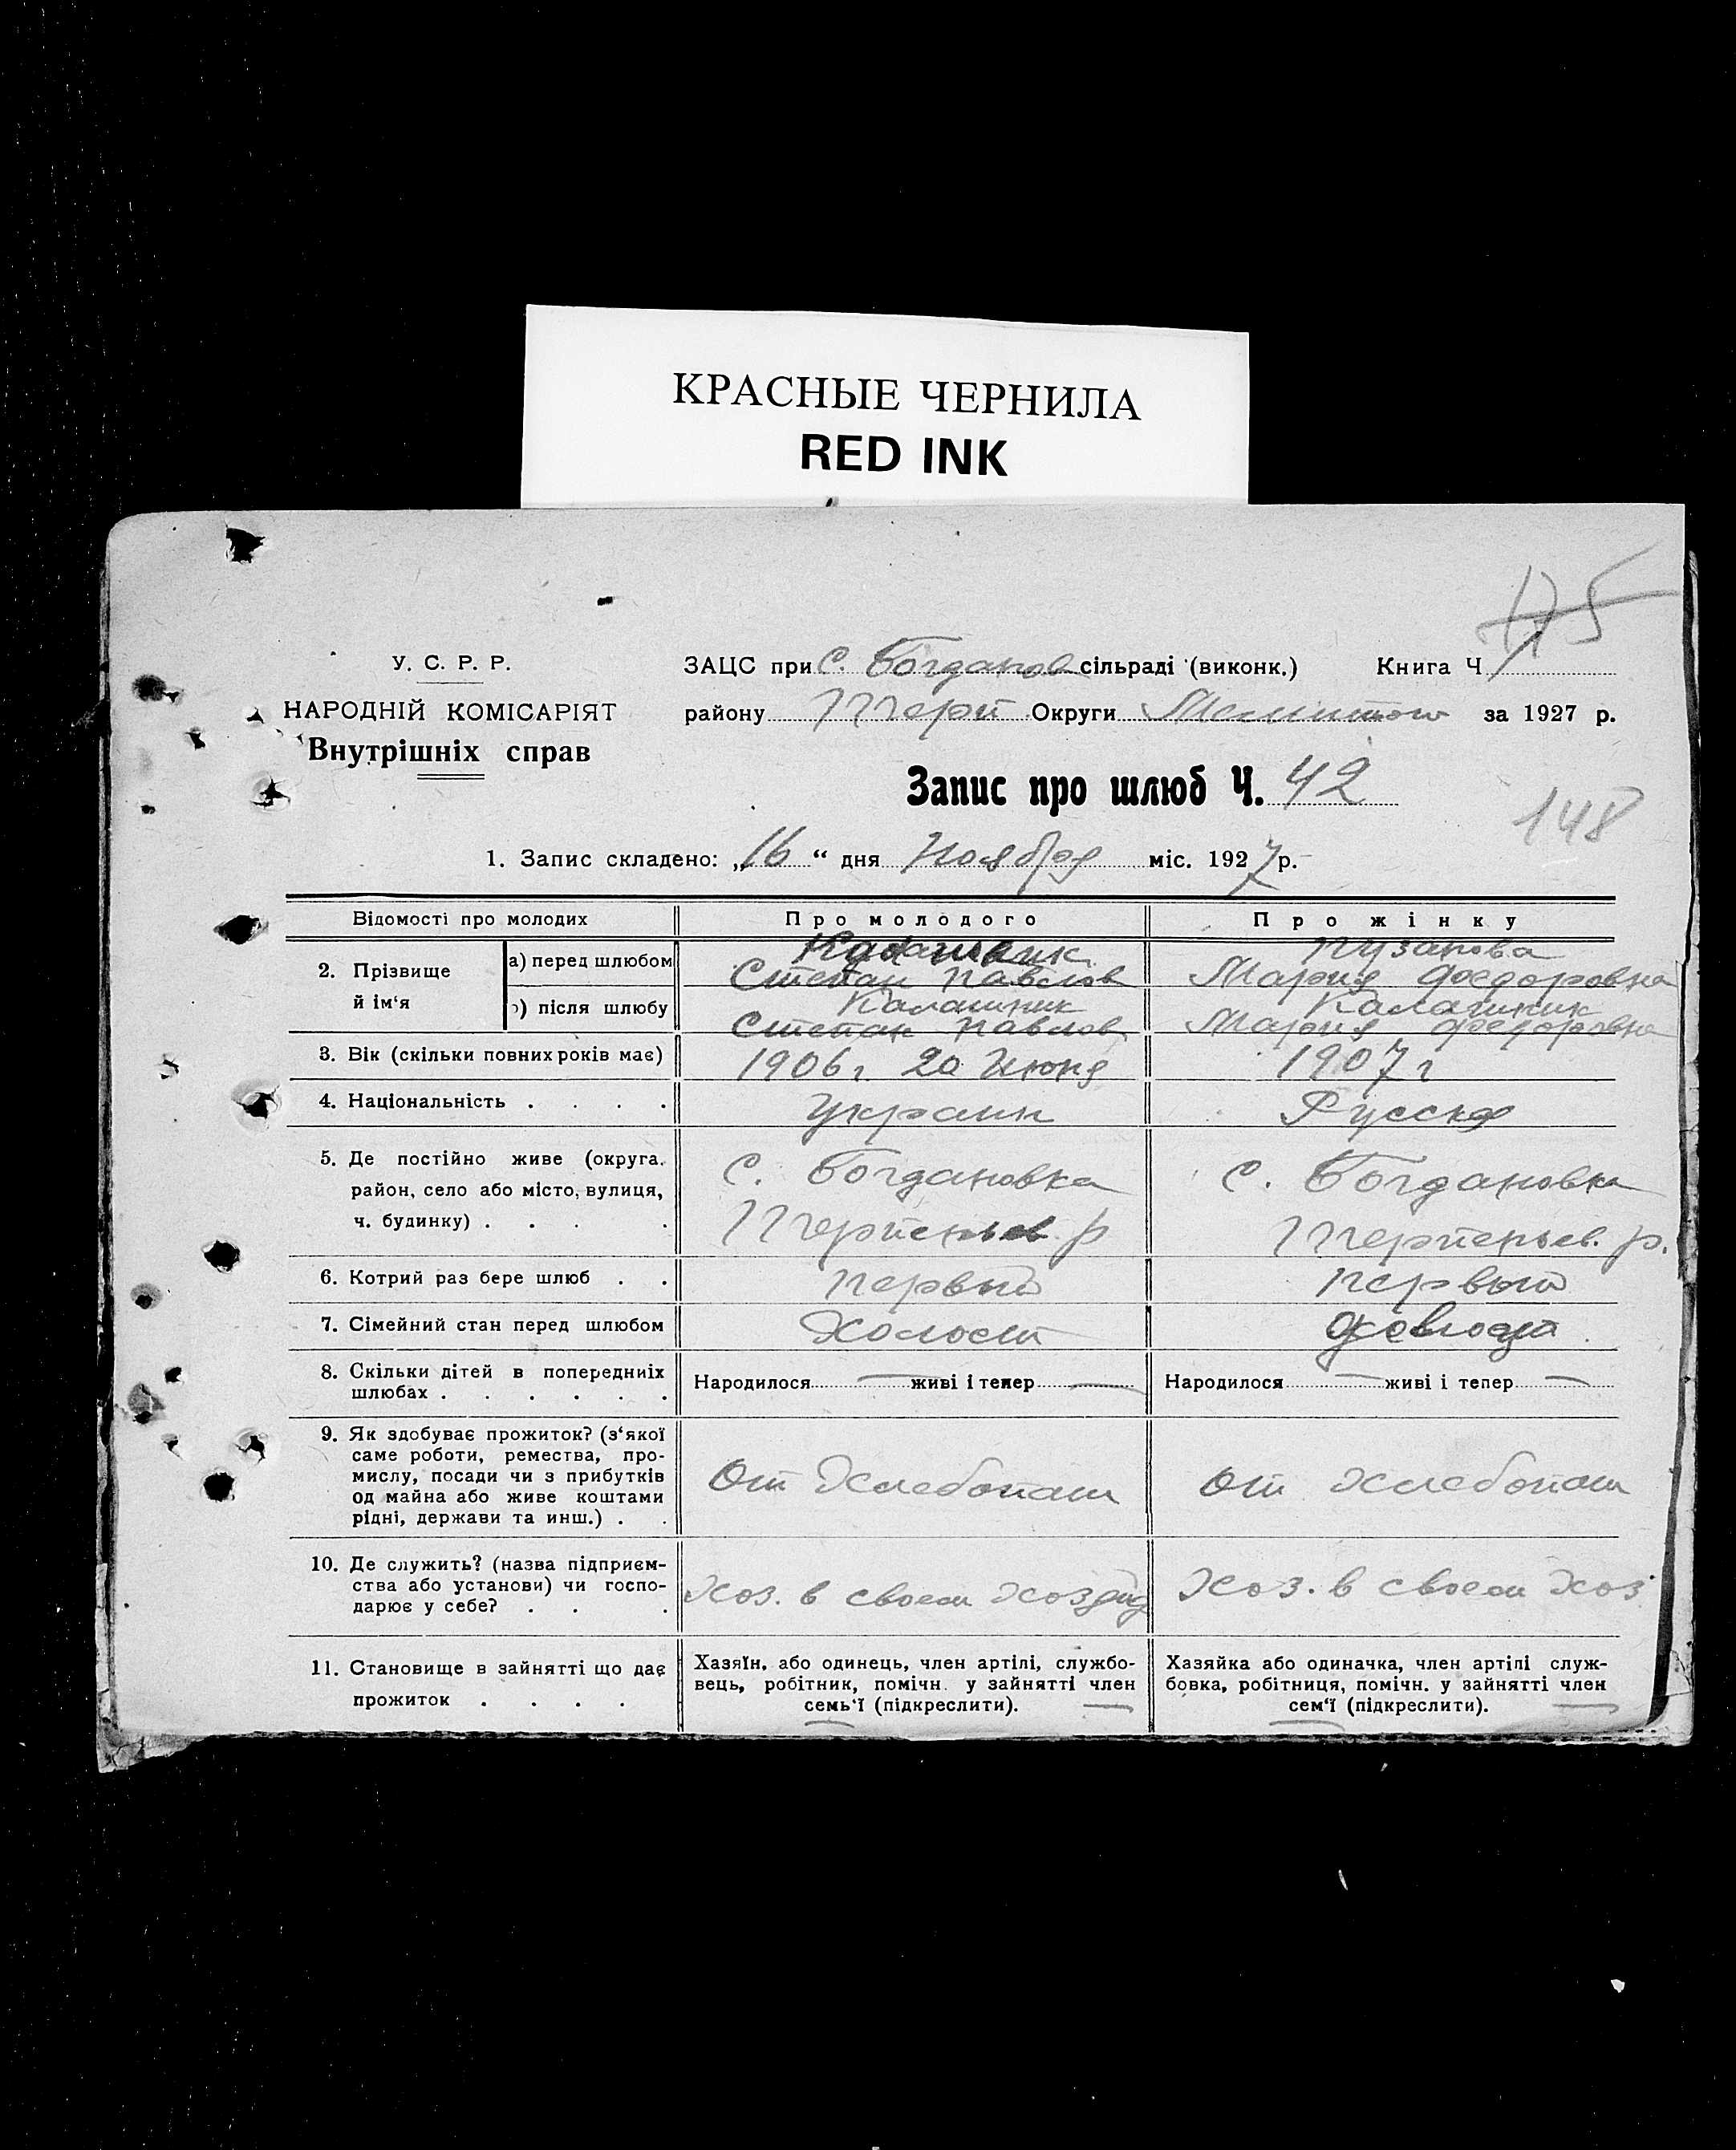 КРАСНЫЕ ЧЕРНИЛА
RED INK
175
У. С. Р. Р.
НАРОДНІЙ КОМІСАРІЯТ
Внутрішніх справ
ЗАЦС при С. Богданов сільраді (виконк.) Книга Ч
району Терп Округи Мелитоп за 1927 р.
Запис про шлюб Ч. 42
148
1. Запис складено: „16“ дня Ноября міс. 1927 р.
Відомості про молодих
Про молодого
Про жінку
2. Прізвище й ім‘я
а) перед шлюбом
Калашник
Степан Павлов
Пузанова
Мария Федоровна
б) після шлюбу
Калашник
Степан Павлов
Калашник
Мария Федоровна
3. Вік (скільки повних років має)
1906 г. 20 Июня
1907 г
4. Національність . . . .
Украин
Русска
5. Де постійно живе (округа,
район, село або місто, вулиця,
ч. будинку) . . . .
С. Богдановка
Терпеньев. р
С. Богдановка
Терпеньев. р.
6. Котрий раз бере шлюб . .
первый
первый
7. Сімейний стан перед шлюбом
Холост
8. Скільки дітей в попередніх
шлюбах . . . . . .
Народилося — живі і тепер —
Народилося — живі і тепер —
9. Як здобуває прожиток? (з‘якої
саме роботи, ремества, про-
мислу, посади чи з прибутків
од майна або живе коштами
рідні, держави та инш.) . .
От Хлебопаш
От хлебопаш
10. Де служить? (назва підприєм-
ства або установи) чи госпо-
дарює у себе? . . .
Хоз. в своем
Хоз. в своем хоз
11. Становище в зайнятті що дає
прожиток . . . .
Хазяїн, або одинець, член артілі, службо-
вець, робітник, помічн. у зайнятті член
семь‘ї (підкреслити).
Хазяйка або одиначка, член артілі служ-
бовка, робітниця, помічн. у зайнятті член
сем‘ї (підкреслити).